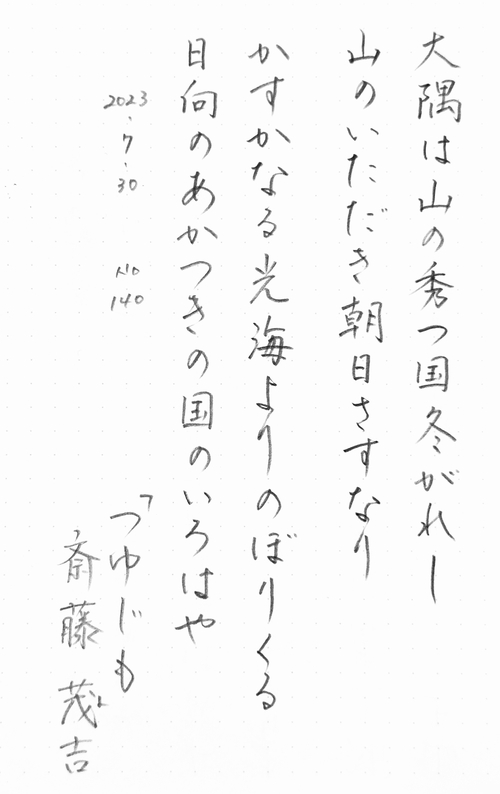 大隅は山の秀つ国冬がれし
山のいただき朝日さすなり
かすかなる光海よりのぼりくる
日向のあかつきの国のいろはや
2023・7・30
140
「つゆじも
斎藤茂吉